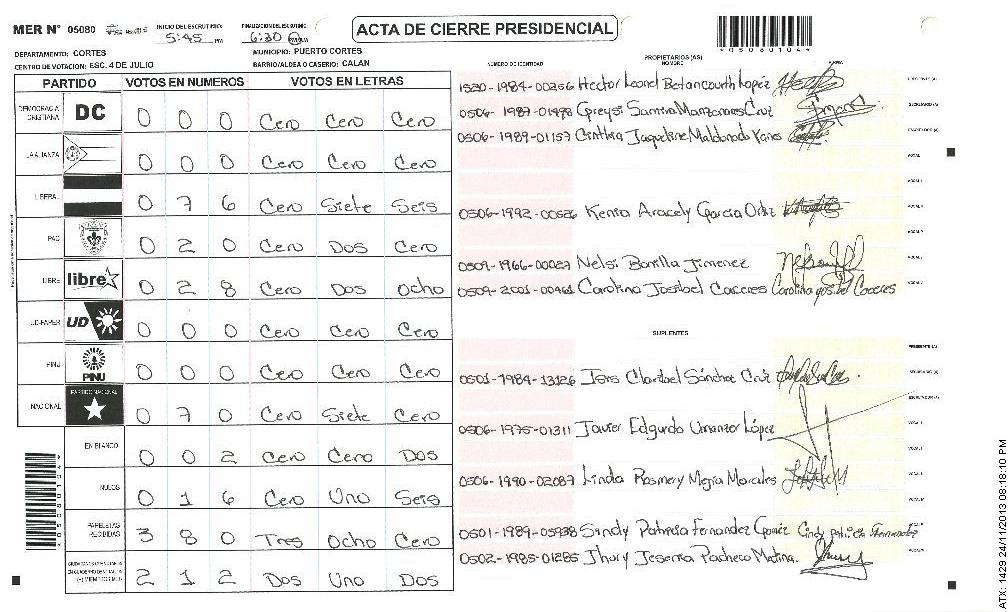 MER N° 05080 INICIO DEL ESCRUTINIO: 5:45 PM FINALIZACION DEL ESCRUTINIO: 6:30 ACTA DE CIERRE PRESIDENCIAL
05080104
DEPARTAMENTO: CORTES MUNICIPIO: PUERTO CORTES
CENTRO DE VOTACION: ESC. 4 DE JULIO BARRIO/ALDEA O CASERIO: CALAN
PARTIDO VOTOS EN NUMEROS VOTOS EN LETRAS
DEMOCRACIA CRISTIANA DC 0 0 0 Cero Cero Cero
LA ALIANZA 0 0 0 Cero Cero Cero
LIBERAL 0 7 6 Cero Siete Seis
PAC 0 2 0 Cero Dos Cero
LIBRE libre 0 2 8 Cero Dos Ocho
UD-FAPER UD 0 0 0 Cero Cero Cero
PINU PINU 0 0 0 Cero Cero Cero
NACIONAL PARTIDO NACIONAL 0 7 0 Cero Siete Cero
EN BLANCO 0 0 2 Cero Cero Dos
NULOS 0 1 6 Cero Uno Seis
PAPELETAS RECIBIDAS 3 8 0 Tres Ocho Cero
2 1 2 Dos Uno Dos
PROPIETARIOS (AS)
NUMERO DE IDENTIDAD NOMBRE FIRMA
1520-1984-00256 Hector Leonel Betancourth López PRESIDENTE (A)
0506-1987-01498 Greysi Samira Manzanares Cruz SECRETARIO (A)
0506-1989-01157 Cinthia Jaqueline Maldonado ESCRUTADOR (A)
VOCAL I
0506-1992-00526 Kenia Aracely Garcia Ortiz
0509-1966-00027 Nelsi Bonilla Jimenez
0509-2001-00461 Carolina Josibel Caceres Carolina Caceres
SUPLENTES
PRESIDENTE (A)
0501-1984-13126 Isis Claribel Sánchez Cruz SECRETARIO (A)
ESCRUTADOR (A)
0506-1975-01311 Javier Edgardo Umanzor López
0506-1990-02087 Linda Rosmery Mejia Morales
0501-1989-05938 Sindy Patricia Fernandez Gomez Cindy patricia Fernandez
0502-1985-01285 Jhury Jeserna Pacheco Molina.
ATX: 1429 24/11/2013 08:18:10 PM